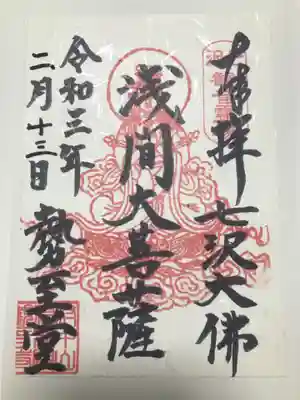 奉拝 七沢大佛
浅間大菩薩
勢至堂
令和三年
二月十三日